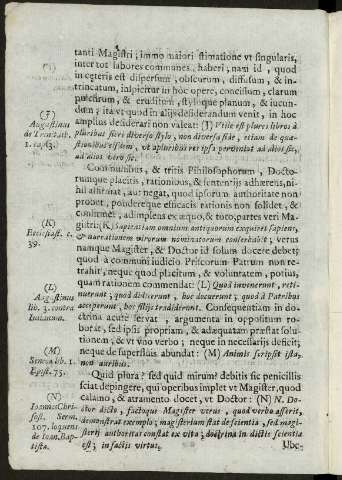 tanti Magistri; immo maiori stimatione vt singularis,
inter tot labores communes, haberi, nam id, quod
in cęteris est dispersum, obscurum, diffusum, & in-
trincatum, inspicitur in hoc opere, concisum, clarum
pulchrum, & eruditum, styloque planum, & iucun-
dum; ita vt quod in alijs desiderandum venit, in hoc
amplius desiderari non valeat: (J) Vtile est plures libros à
pluribus fieri diverso stylo, non diversa fide, etiam de quæ-
stionibus eisdem, vt ad plures res ipsa perveniat ad alios sic,
ad alios vero sic.
(J)
Augustinus
de Trinit. lib.
1. cap. 3.
Communibus, & tritis Philosophorum, Docto-
rumque placitis, rationibus, & sententijs adhærens, ni-
hil affirmat, aut negat, quod ipsorum authoritate non
probet, ponderéque efficacis rationis non solidet, &
confirmet, adimplens ex æquo, & toto, partes veri Ma-
gistri: (K) Sapientiam omnium antiquorum exquiret sapiens,
& narrationem virorum nominatorum conservabit; verus
namque Magister, & Doctor id solum docere debet;
quod à communi iudicio Priscorum Patrum non re-
trahit, neque quod placitum, & voluntatem, potius,
quam rationem commendat: (L) Quod invenerunt, reti-
nuerunt; quod didicerunt, hoc docuerunt; quod à Patribus
acceperunt, hoc filijs tradiderunt. Consequentiam in do-
ctrina acute servat, argumenta in oppositum ro-
borat, sed ipsis propriam, & adæquatam præstat solu-
tionem, & vt vno verbo; neque in necessarijs deficit;
neque de superfluis abundat: (M) Animis scripsit ista,
non auribus.
(K)
Ecclesiast. c.
39.
(L)
Augustinus
lib. 3. contra
Iulianum.
(M)
Seneca lib. 1.
Epist. 75.
Quid plura? sed quid mirum? debitis sic penicillis
sciat depingere, qui operibus implet vt Magister, quod
calamo, & atramento docet, vt Doctor: (N) N. Do-
ctor dicto, factoque Magister verus, quod verbo asserit,
demonstrat exemplo; magisterium stat de scientia, sed magi-
sterij authoritas constat ex vita; doctrina in dictis scientia
est; in factis virtus.
(N)
Ioannes Chri-
sost. Serm.
107. loquens
de Ioan. Bap-
tista.
Ubc-